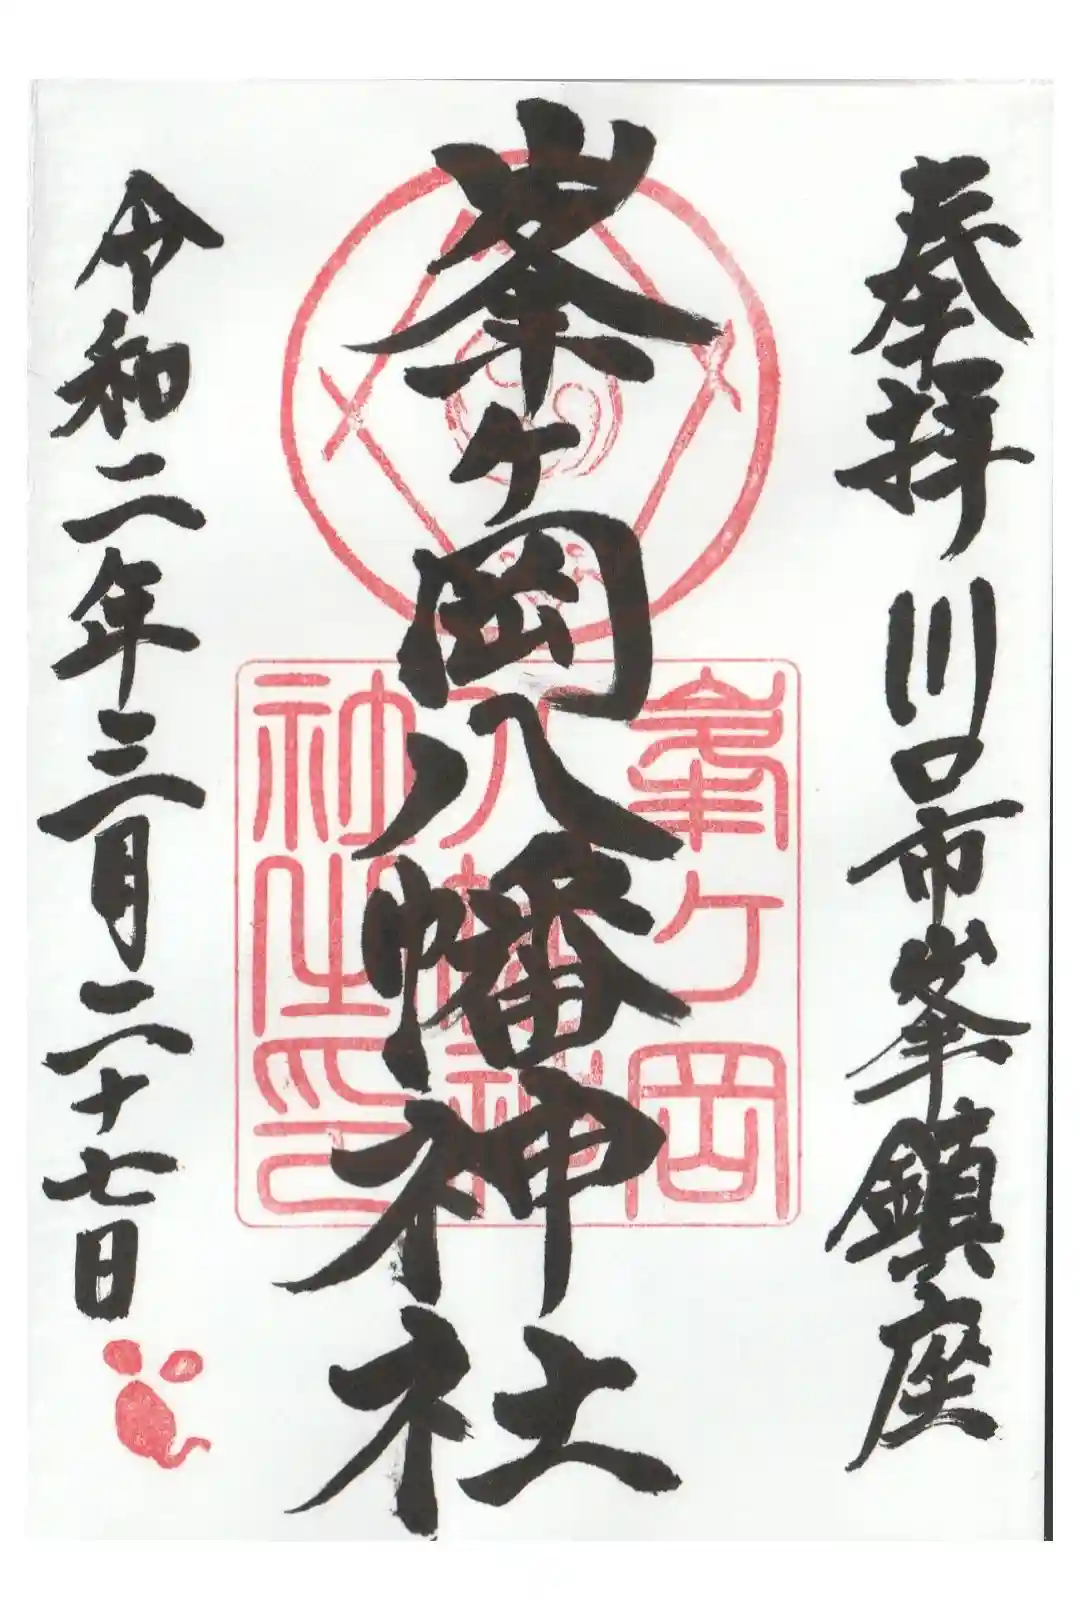 奉拝 川口市峯鎮座
峯ヶ岡八幡神社
令和二年三月二十七日
峯ヶ岡
八幡神
社之印